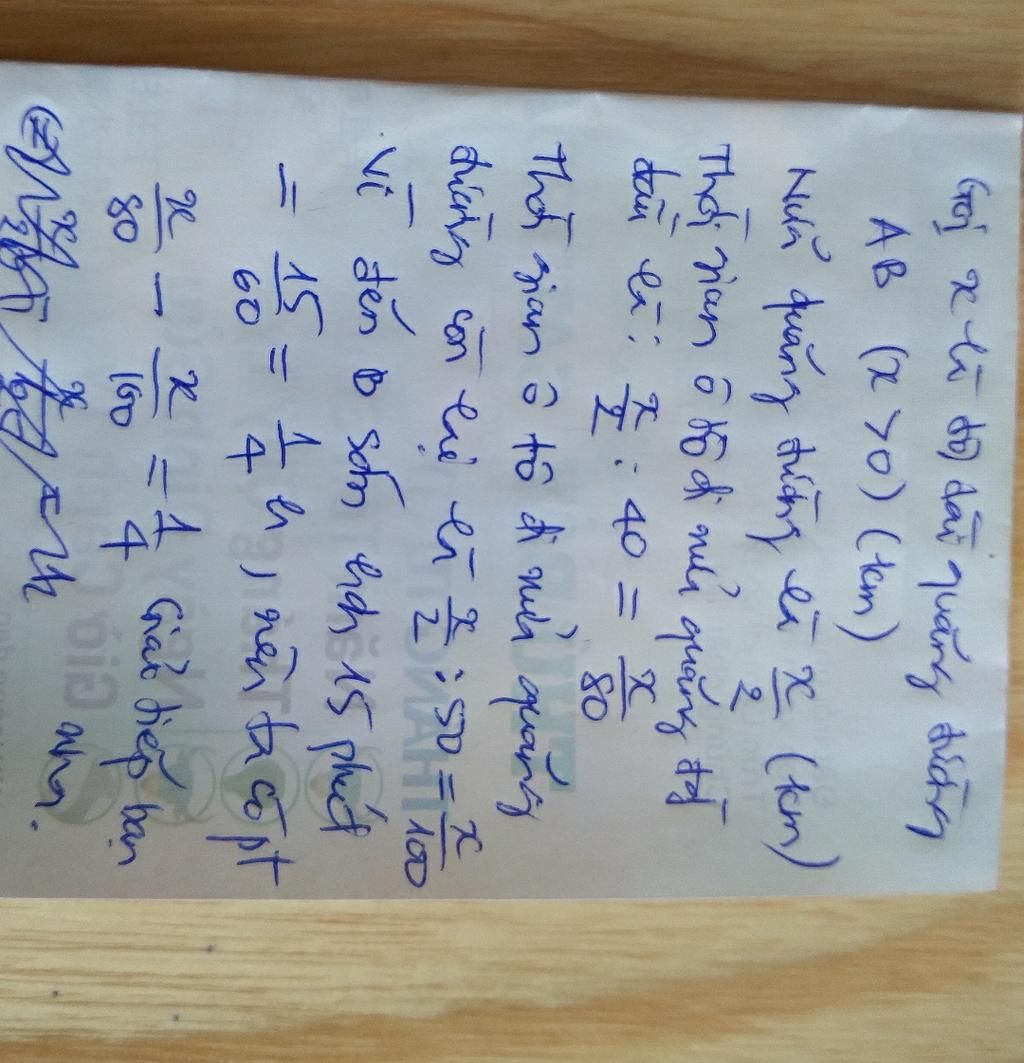 Gọi x là độ dài quãng đường
AB (x > 0) (km)
Nửa quãng đường là x/2 (km)
Thời gian ô tô đi nửa quãng đg
đầu là: x/2 : 40 = x/80
Thời gian ô tô đi nửa quãng
đường còn lại là x/2 : 50 = x/100
Vì đến B sớm hơn 15 phút
= 15/60 = 1/4 h, nên ta có pt
x/80 - x/100 = 1/4 Giải tiếp bạn
nha.